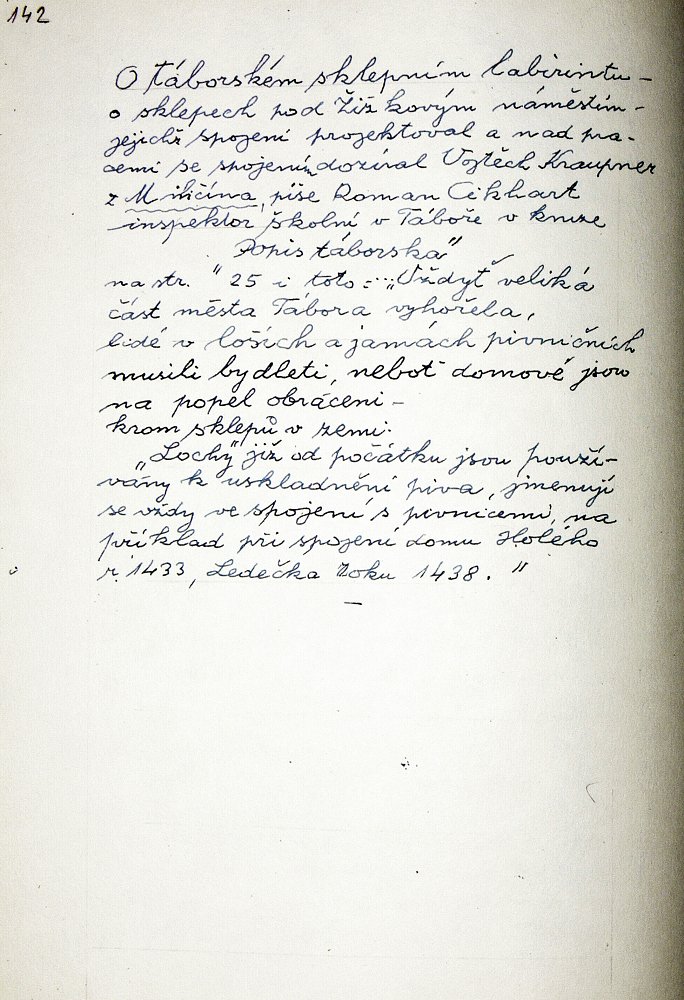 142
O táborském sklepním labirintu -
o sklepech pod Žižkovým náměstím -
jejichž spojení projektoval a nad pra-
cemi se spojením dozíral Vojtěch Kraupner
z Miličína, píše Roman Cikhart
inspektor školní v Táboře v knize
Popis táborska"
na str. "25 i toto = ... „Vždyť veliká
část města Tábora vyhořela,
lidé v loších a jamách pivničních
musili bydleti, neboť domové jsou
na popel obráceni -
krom sklepů v zemi.
„Lochy" již od počátku jsou použí-
vány k uskladnění piva, jmenují
se vždy ve spojení s pivnicemi, na
příklad při spojení domu Holého
r. 1433, Ledečka roku 1438. "